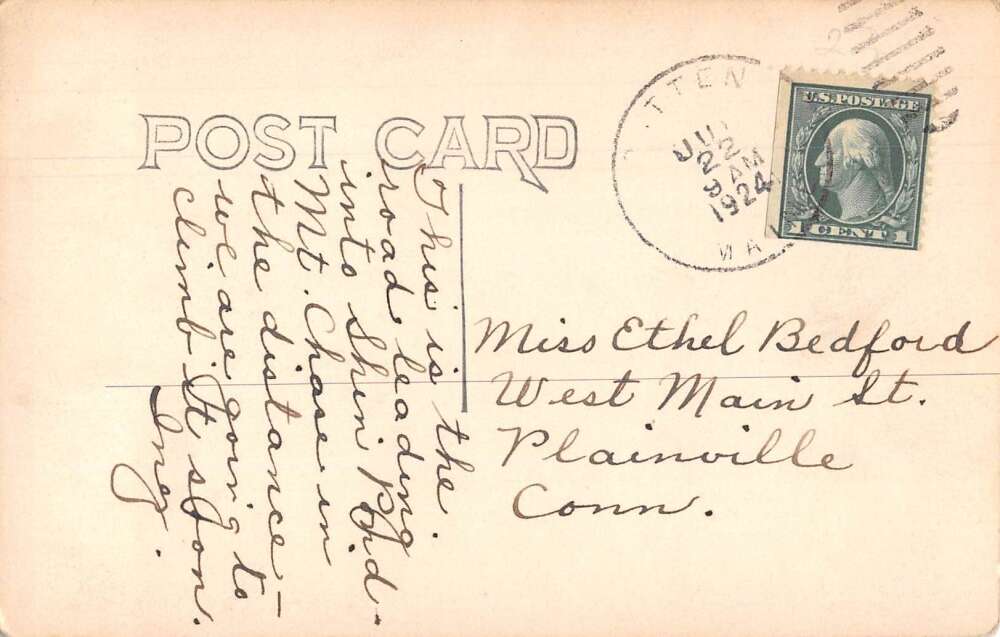 POST CARD
TTEN
JUL
22
9 AM
1924
MA
U.S. POSTAGE
1 CENT 1
This is the
road leading
into Shin Pond.
Mt. Chase in
the distance –
we are going to
climb it soon.
Inez.
Miss Ethel Bedford
West Main St.
Plainville
Conn.